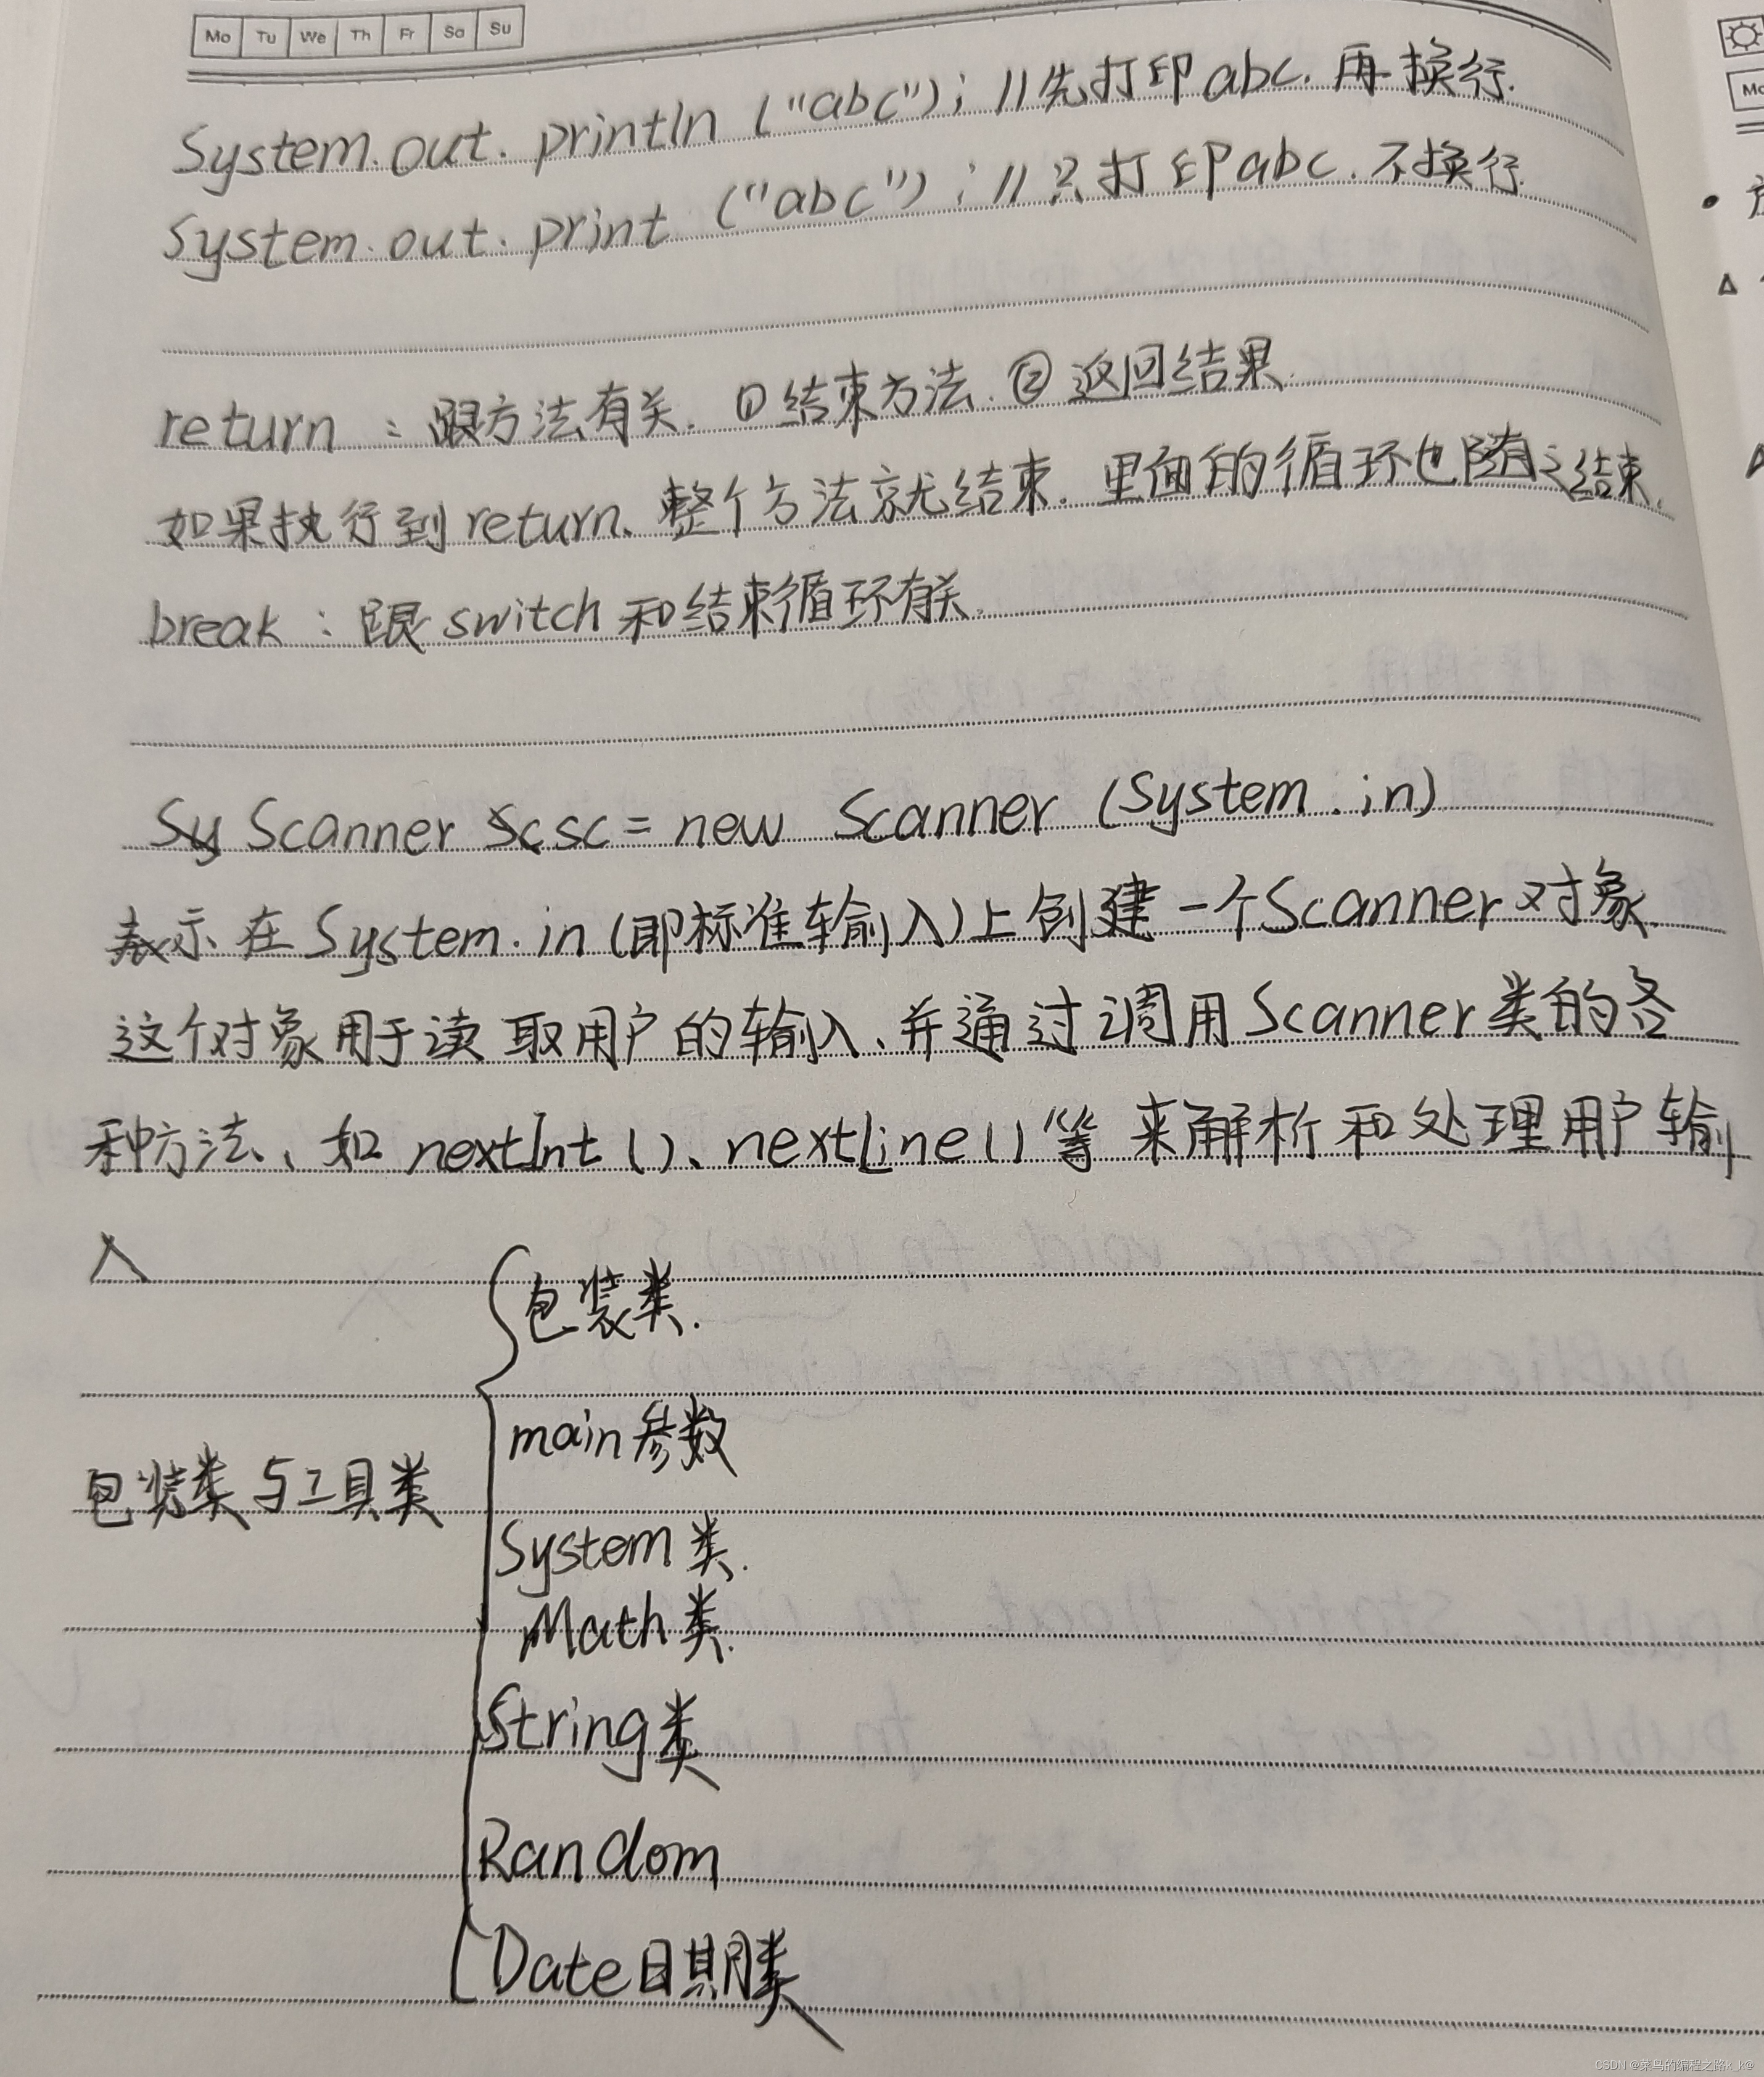 Mo Tu We Th Fr Sa Su
System.out.println("abc"); //先打印abc.再换行.
System.out.print("abc"); //只打印abc.不换行
return：跟方法有关. ①结束方法. ②返回结果.
如果执行到return、整个方法就结束.里面的循环也随之结束.
break：跟switch和结束循环有关.
Scanner sc = new Scanner (System.in)
表示在System.in(即标准输入)上创建一个Scanner对象.
这个对象用于读取用户的输入、并通过调用Scanner类的各
种方法、如nextInt()、nextLine()等来解析和处理用户输
入
包装类与工具类
包装类.
main参数
System类.
Math类.
String类
Random
Date日期类
CSDN @菜鸟的编程之路k_k@